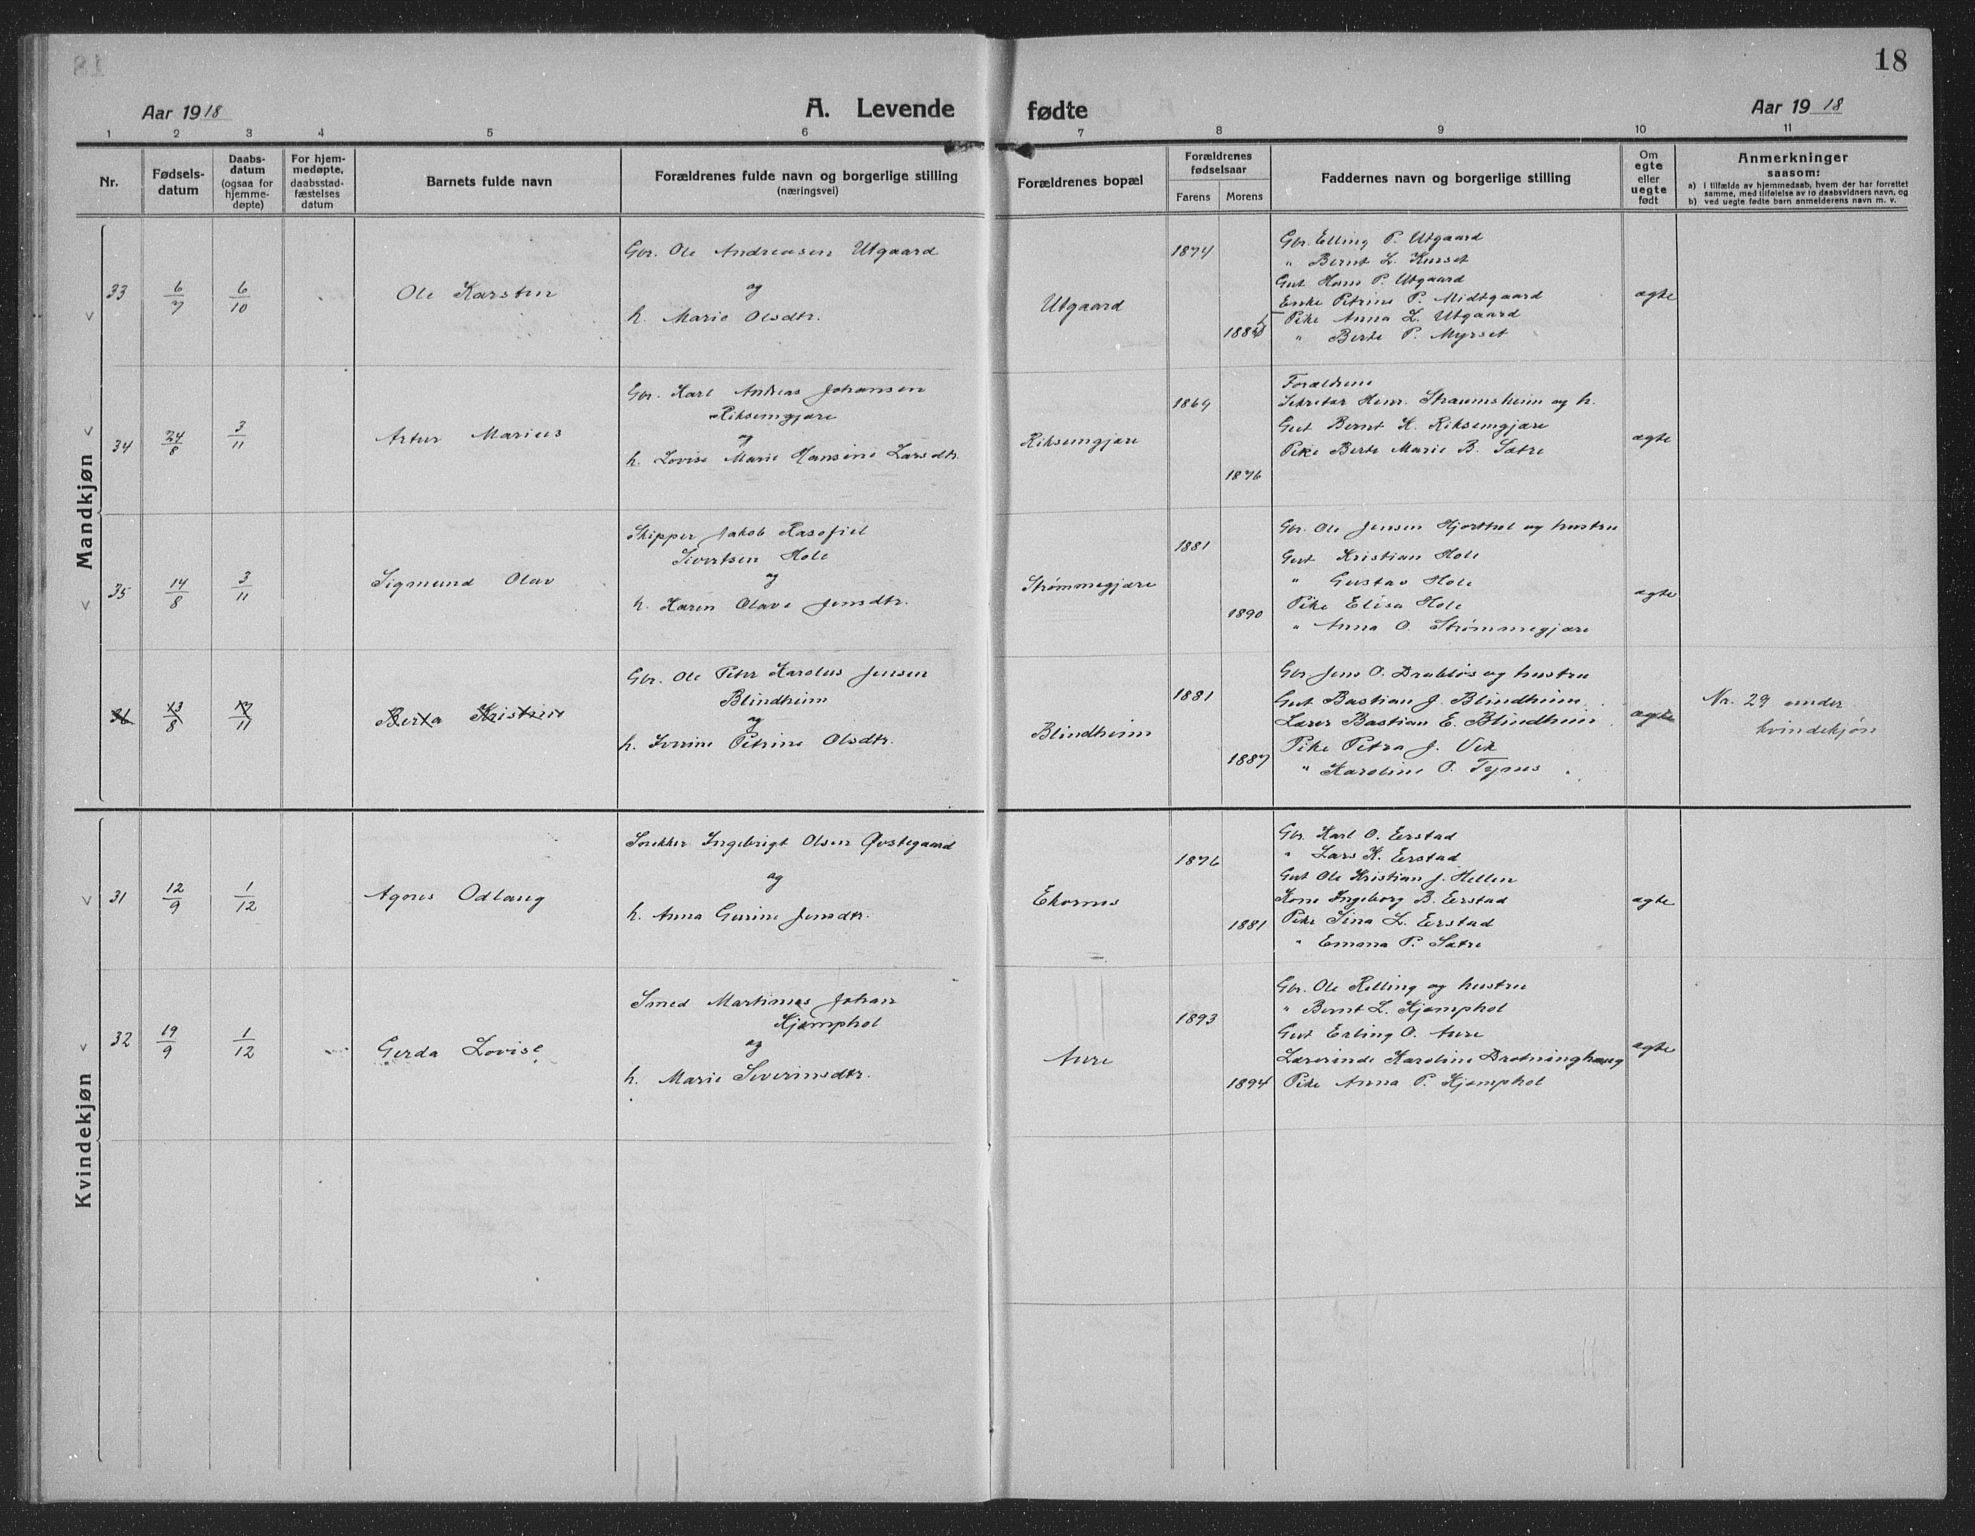 18
Aar 1918
A. Levende fødte
Aar 1918
1 2 3 4 5 6 7 8 9 10 11
Nr.
Fødsels-
datum
Daabs-
datum
(ogsaa for
hjemme-
døpte)
For hjem-
medøpte,
daabsstad-
fæstelses
datum
Barnets fulde navn
Forældrenes fulde navn og borgerlige stilling
(næringsvei)
Forældrenes bopæl
Forældrenes
fødselsaar
Farens Morens
Faddernes navn og borgerlige stilling
Om
egte
eller
uegte
født
Anmerkninger
saasom:
a) i tilfælde av hjemmedaab, hvem der har forrettet
samme, med tilføielse av to daabsvidners navn, og
b) ved uegte fødte barn anmelderens navn m. v.
Mandkjøn
33
6/7
6/10
Ole Karsten
Gbr. Ole Andreasen Utgaard
og
h. Marie Olsdtr.
Utgaard
1874
Gbr. Elling P. Utgaard
" Bernt L. Kurset
Gut Hans P. Utgaard
Enke Petrine P. Midtgaard
Pike Anna L. Utgaard
" Berte P. Myrset
ægte
34
24/8
3/11
Artur Marius
Gbr. Karl Andreas Johansen
Riksemgjære
og
h. Lovise Marie Hansine Larsdtr.
Riksemgjære
1869
1876
Forældrene
Sekretær Henr. Straumsheim og h.
Gut Bernt K. Riksemgjære
Pike Berte Marie B. Sætre
ægte
35
14/8
3/11
Sigmund Olav
Skipper Jakob Rasofiel
Sivertsen Hole
og
h. Karen Olave Jensdtr.
Strømmegjære
1881
1890
Gbr. Ole Jensen Hjorthol og hustru
Gut Kristian Hole
" Gustav Hole
Pike Elisa Hole
" Anna O. Strømmegjære
ægte
36
13/8
17/11
Berta Kristine
Gbr. Ole Peter Karolus Jensen
Blindheim
og
h. Iverine Petrine Olsdtr.
Blindheim
1881
1887
Gbr Jens O. Drabløs og hustru
Gut Bastian J. Blindheim
Lærer Bastian E. Blindheim
Pike Petra J. Vik
" Karoline O. Tynes
ægte
Nr. 29 under
kvindekjøn
Kvindekjøn
31
12/9
1/12
Agnes Odlaug
Snekker Ingebrigt Olsen Øvstegaard
og
h. Anna Gurine Jensdtr.
Ekornes
1876
1881
Gbr. Karl O. Eerstad
" Lars K. Eerstad
Gut Ole Kristian J. Hellen
Kone Ingeborg B. Eerstad
Pike Sina L. Eerstad
" Emona P. Sætre
ægte
32
19/9
1/12
Gerda Lovise
Smed Martinus Johan
Kjæmphol
og
h. Marie Severinsdtr.
Aure
1893
1894
Gbr. Ole Relling og hustru
" Bernt L. Kjæmphol
Gut Erling O. Aure
Lærerinde Karoline Drotninghaug
Pike Anna P. Kjæmphol
ægte